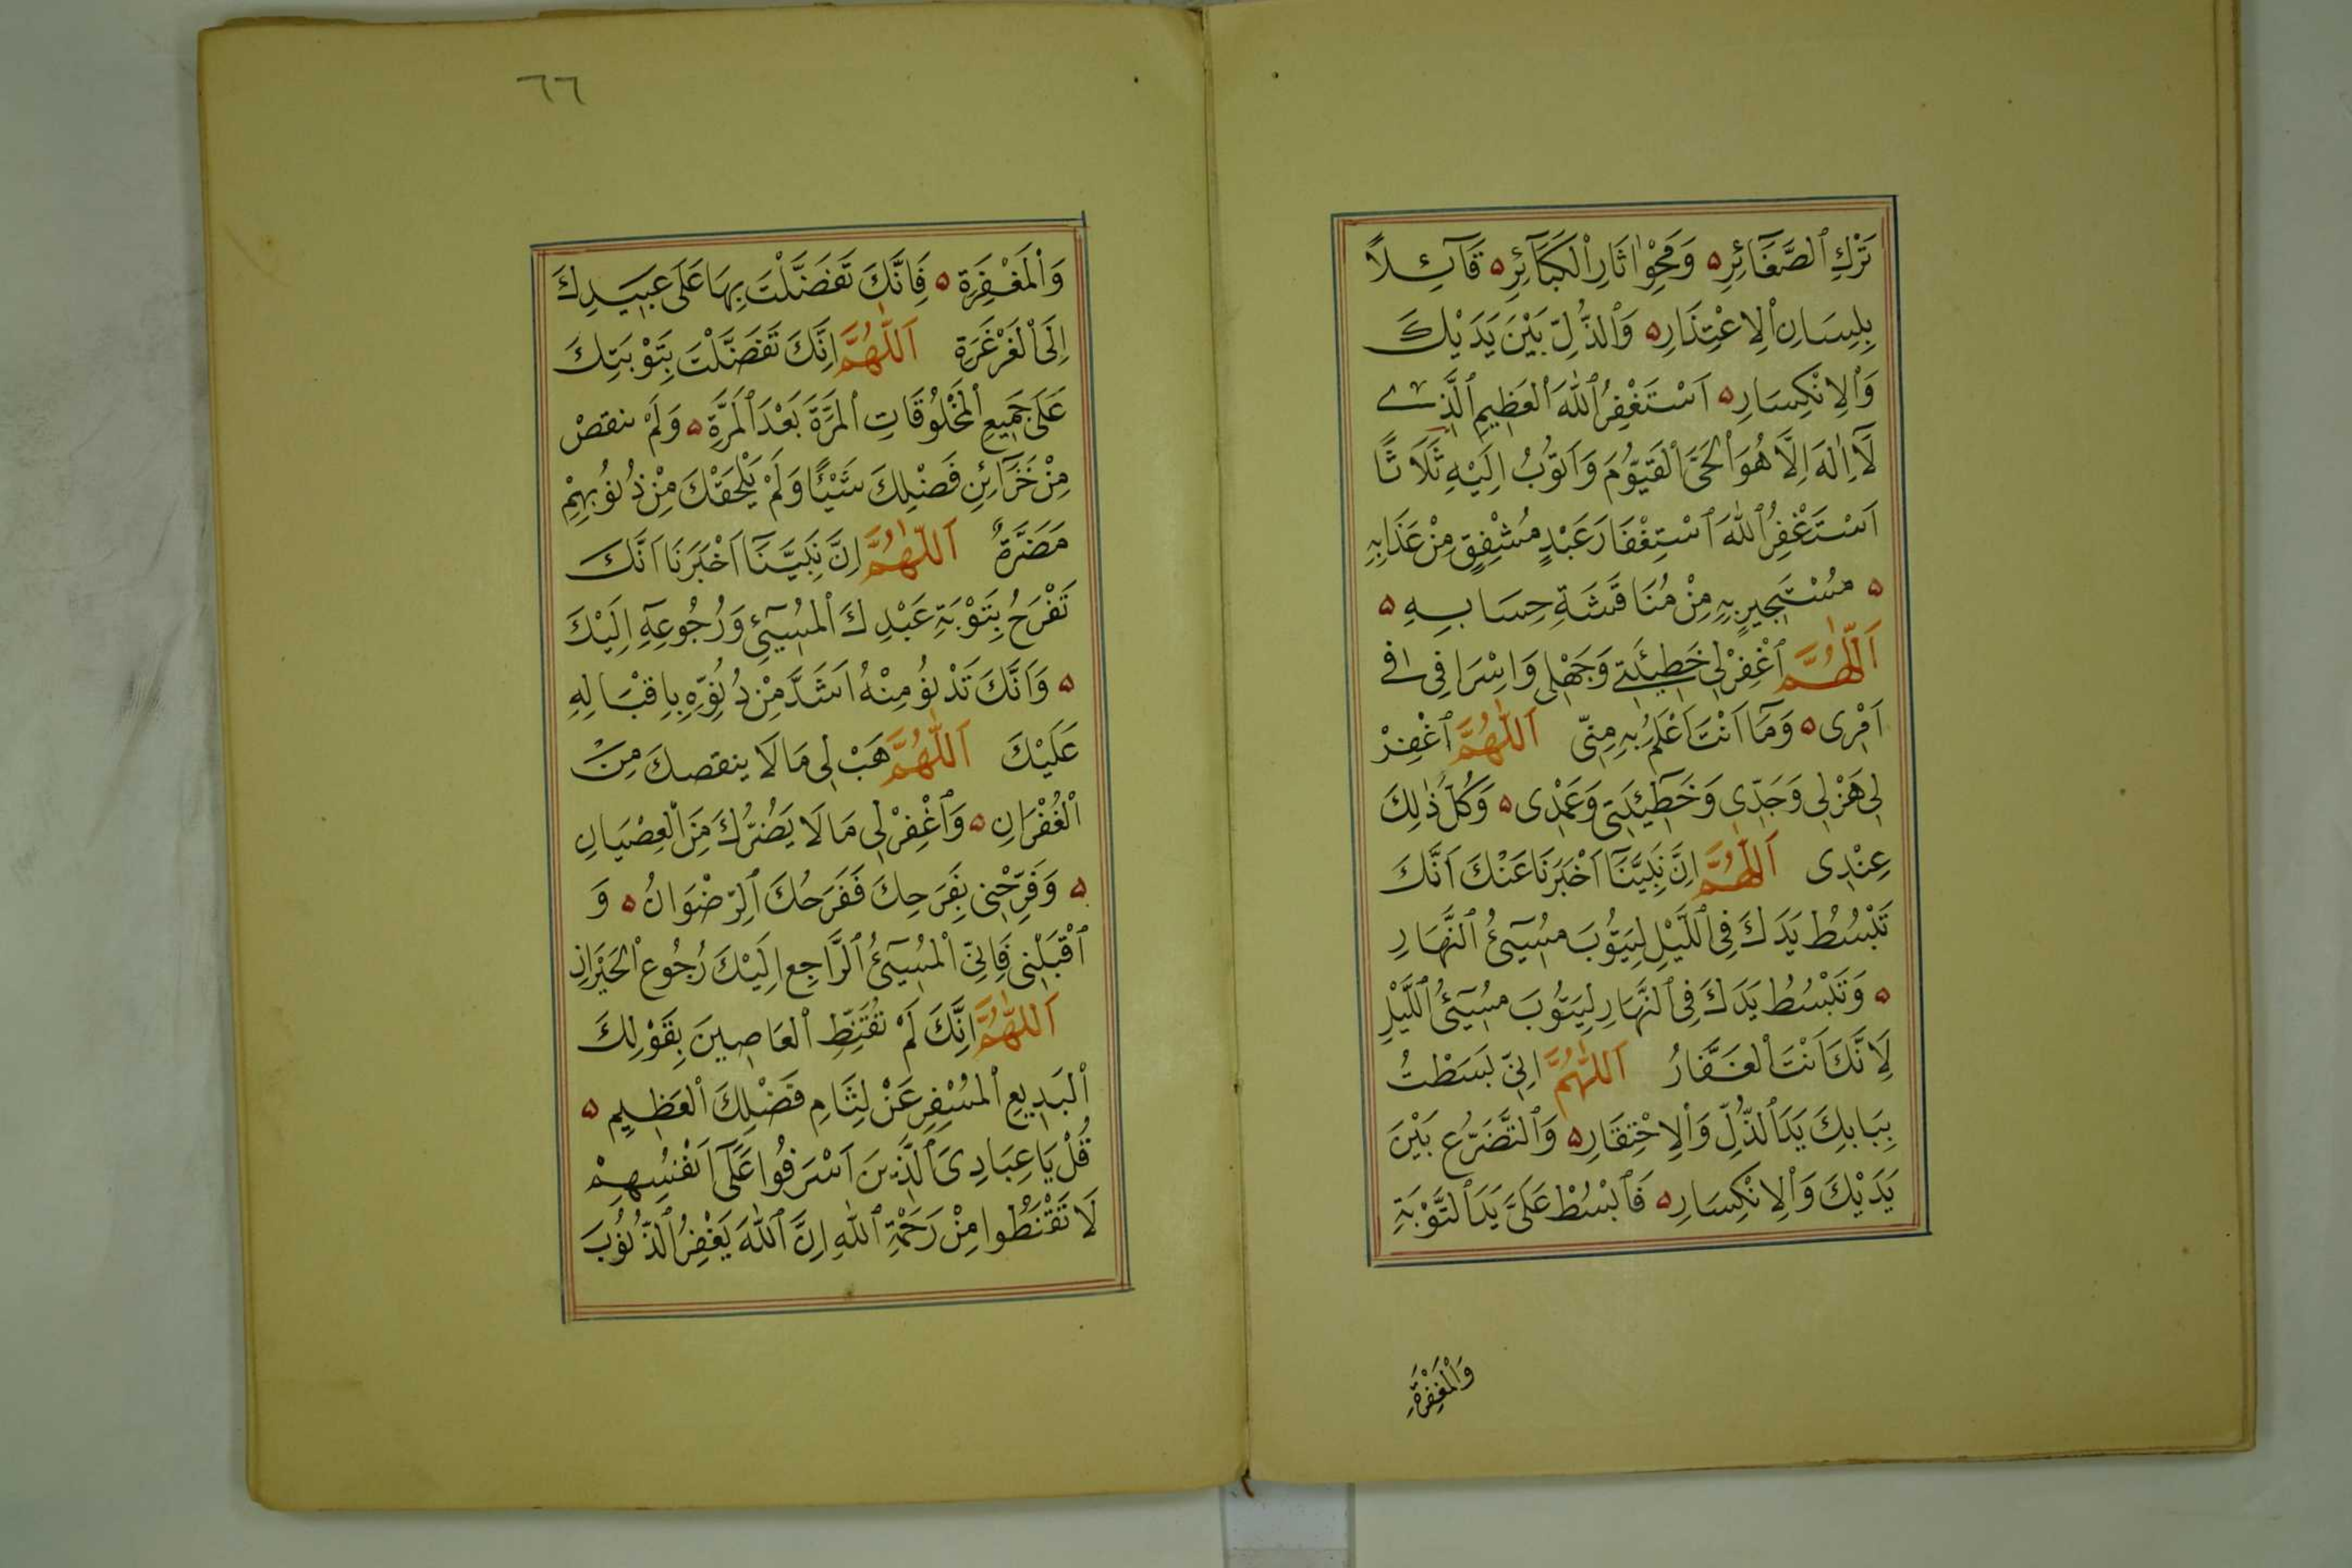 تَرْكِ ٱلصَّغَآئِرِ ۵ وَمَحْوِ اٰثَارِ ٱلْكَبَآئِرِ ۵ قَآئِلاً
بِلِسَانِ ٱلِاعْتِذَارِ ۵ وَٱلذُّلِّ بَيْنَ يَدَيْكَ
وَٱلِانْكِسَارِ ۵ اَسْتَغْفِرُ ٱللّٰهَ ٱلْعَظِيمَ ٱلَّذِى
لَآ اِلٰهَ اِلَّا هُوَ ٱلْحَىَّ ٱلْقَيُّومَ وَاَتُوبُ اِلَيْهِ ثَلَاثًا
اَسْتَغْفِرُ ٱللّٰهَ ٱسْتِغْفَارَ عَبْدٍ مُشْفِقٍ مِنْ عَذَابِهِ
۵ مُسْتَجِيرٍ بِهِ مِنْ مُنَاقَشَةِ حِسَابِهِ ۵
اَللّٰهُمَّ ٱغْفِرْ لِى خَطِيئَتِى وَجَهْلِى وَاِسْرَافِى فِى
اَمْرِى ۵ وَمَآ اَنْتَ اَعْلَمُ بِهِ مِنِّى اَللّٰهُمَّ ٱغْفِرْ
لِى هَزْلِى وَجَدِّى وَخَطِيئَتِى وَعَمْدِى ۵ وَكُلُّ ذٰلِكَ
عِنْدِى اَللّٰهُمَّ اِنَّ نَبِيَّنَآ اَخْبَرَنَا عَنْكَ اَنَّكَ
تَبْسُطُ يَدَكَ فِى ٱللَّيْلِ لِيَتُوبَ مُسِيٓئُ ٱلنَّهَارِ
۵ وَتَبْسُطُ يَدَكَ فِى ٱلنَّهَارِ لِيَتُوبَ مُسِيٓئُ ٱللَّيْلِ
لِاَنَّكَ اَنْتَ ٱلْغَفَّارُ اَللّٰهُمَّ اِنِّى بَسَطْتُ
بِبَابِكَ يَدَ ٱلذُّلِّ وَٱلِاحْتِقَارِ ۵ وَٱلتَّضَرُّعِ بَيْنَ
يَدَيْكَ وَٱلِانْكِسَارِ ۵ فَٱبْسُطْ عَلَىَّ يَدَ ٱلتَّوْبَةِ
وَٱلْمَغْفِرَةِ
٦٦
وَٱلْمَغْفِرَةِ ۵ فَاِنَّكَ تَفَضَّلْتَ بِهَا عَلَى عَبِيدِكَ
اِلَى ٱلْغَرْغَرَةِ اَللّٰهُمَّ اِنَّكَ تَفَضَّلْتَ بِتَوْبَتِكَ
عَلَى جَمِيعِ ٱلْمَخْلُوقَاتِ ٱلْمَرَّةَ بَعْدَ ٱلْمَرَّةِ ۵ وَلَمْ ينقصْ
مِنْ خَزَآئِنِ فَضْلِكَ شَيْئًا وَلَمْ يَلْحَقْكَ مِنْ ذُنُوبِهِمْ
مَضَرَّةٌ اَللّٰهُمَّ اِنَّ نَبِيَّنَآ اَخْبَرَنَا اَنَّكَ
تَفْرَحُ بِتَوْبَةِ عَبْدِكَ ٱلْمُسِيٓئِ وَرُجُوعِهِ اِلَيْكَ
۵ وَاَنَّكَ تَدْنُو مِنْهُ اَشَدَّ مِنْ دُنُوِّهِ بِاِقْبَالِهِ
عَلَيْكَ اَللّٰهُمَّ هَبْ لِى مَا لَا ينقصكَ مِنَ
ٱلْغُفْرَانِ ۵ وَٱغْفِرْ لِى مَا لَا يَضُرُّكَ مِنَ ٱلْعِصْيَانِ
۵ وَفَرِّحْنِى بِفَرَحِكَ فَفَرَحُكَ ٱلرِّضْوَانُ ۵ وَ
ٱقْبَلْنِى فَاِنِّى ٱلْمُسِيٓئُ ٱلرَّاجِعُ اِلَيْكَ رُجُوعَ ٱلْحَيْرَانِ
اَللّٰهُمَّ اِنَّكَ لَمْ تُقَنِّطِ ٱلْعَاصِينَ بِقَوْلِكَ
ٱلْبَدِيعِ ٱلْمُسْفِرِ عَنْ لِثَامِ فَضْلِكَ ٱلْعَظِيمِ ۵
قُلْ يَا عِبَادِىَ ٱلَّذِينَ اَسْرَفُوا عَلَىٓ اَنْفُسِهِمْ
لَا تَقْنَطُوا مِنْ رَحْمَةِ ٱللّٰهِ اِنَّ ٱللّٰهَ يَغْفِرُ ٱلذُّنُوبَ